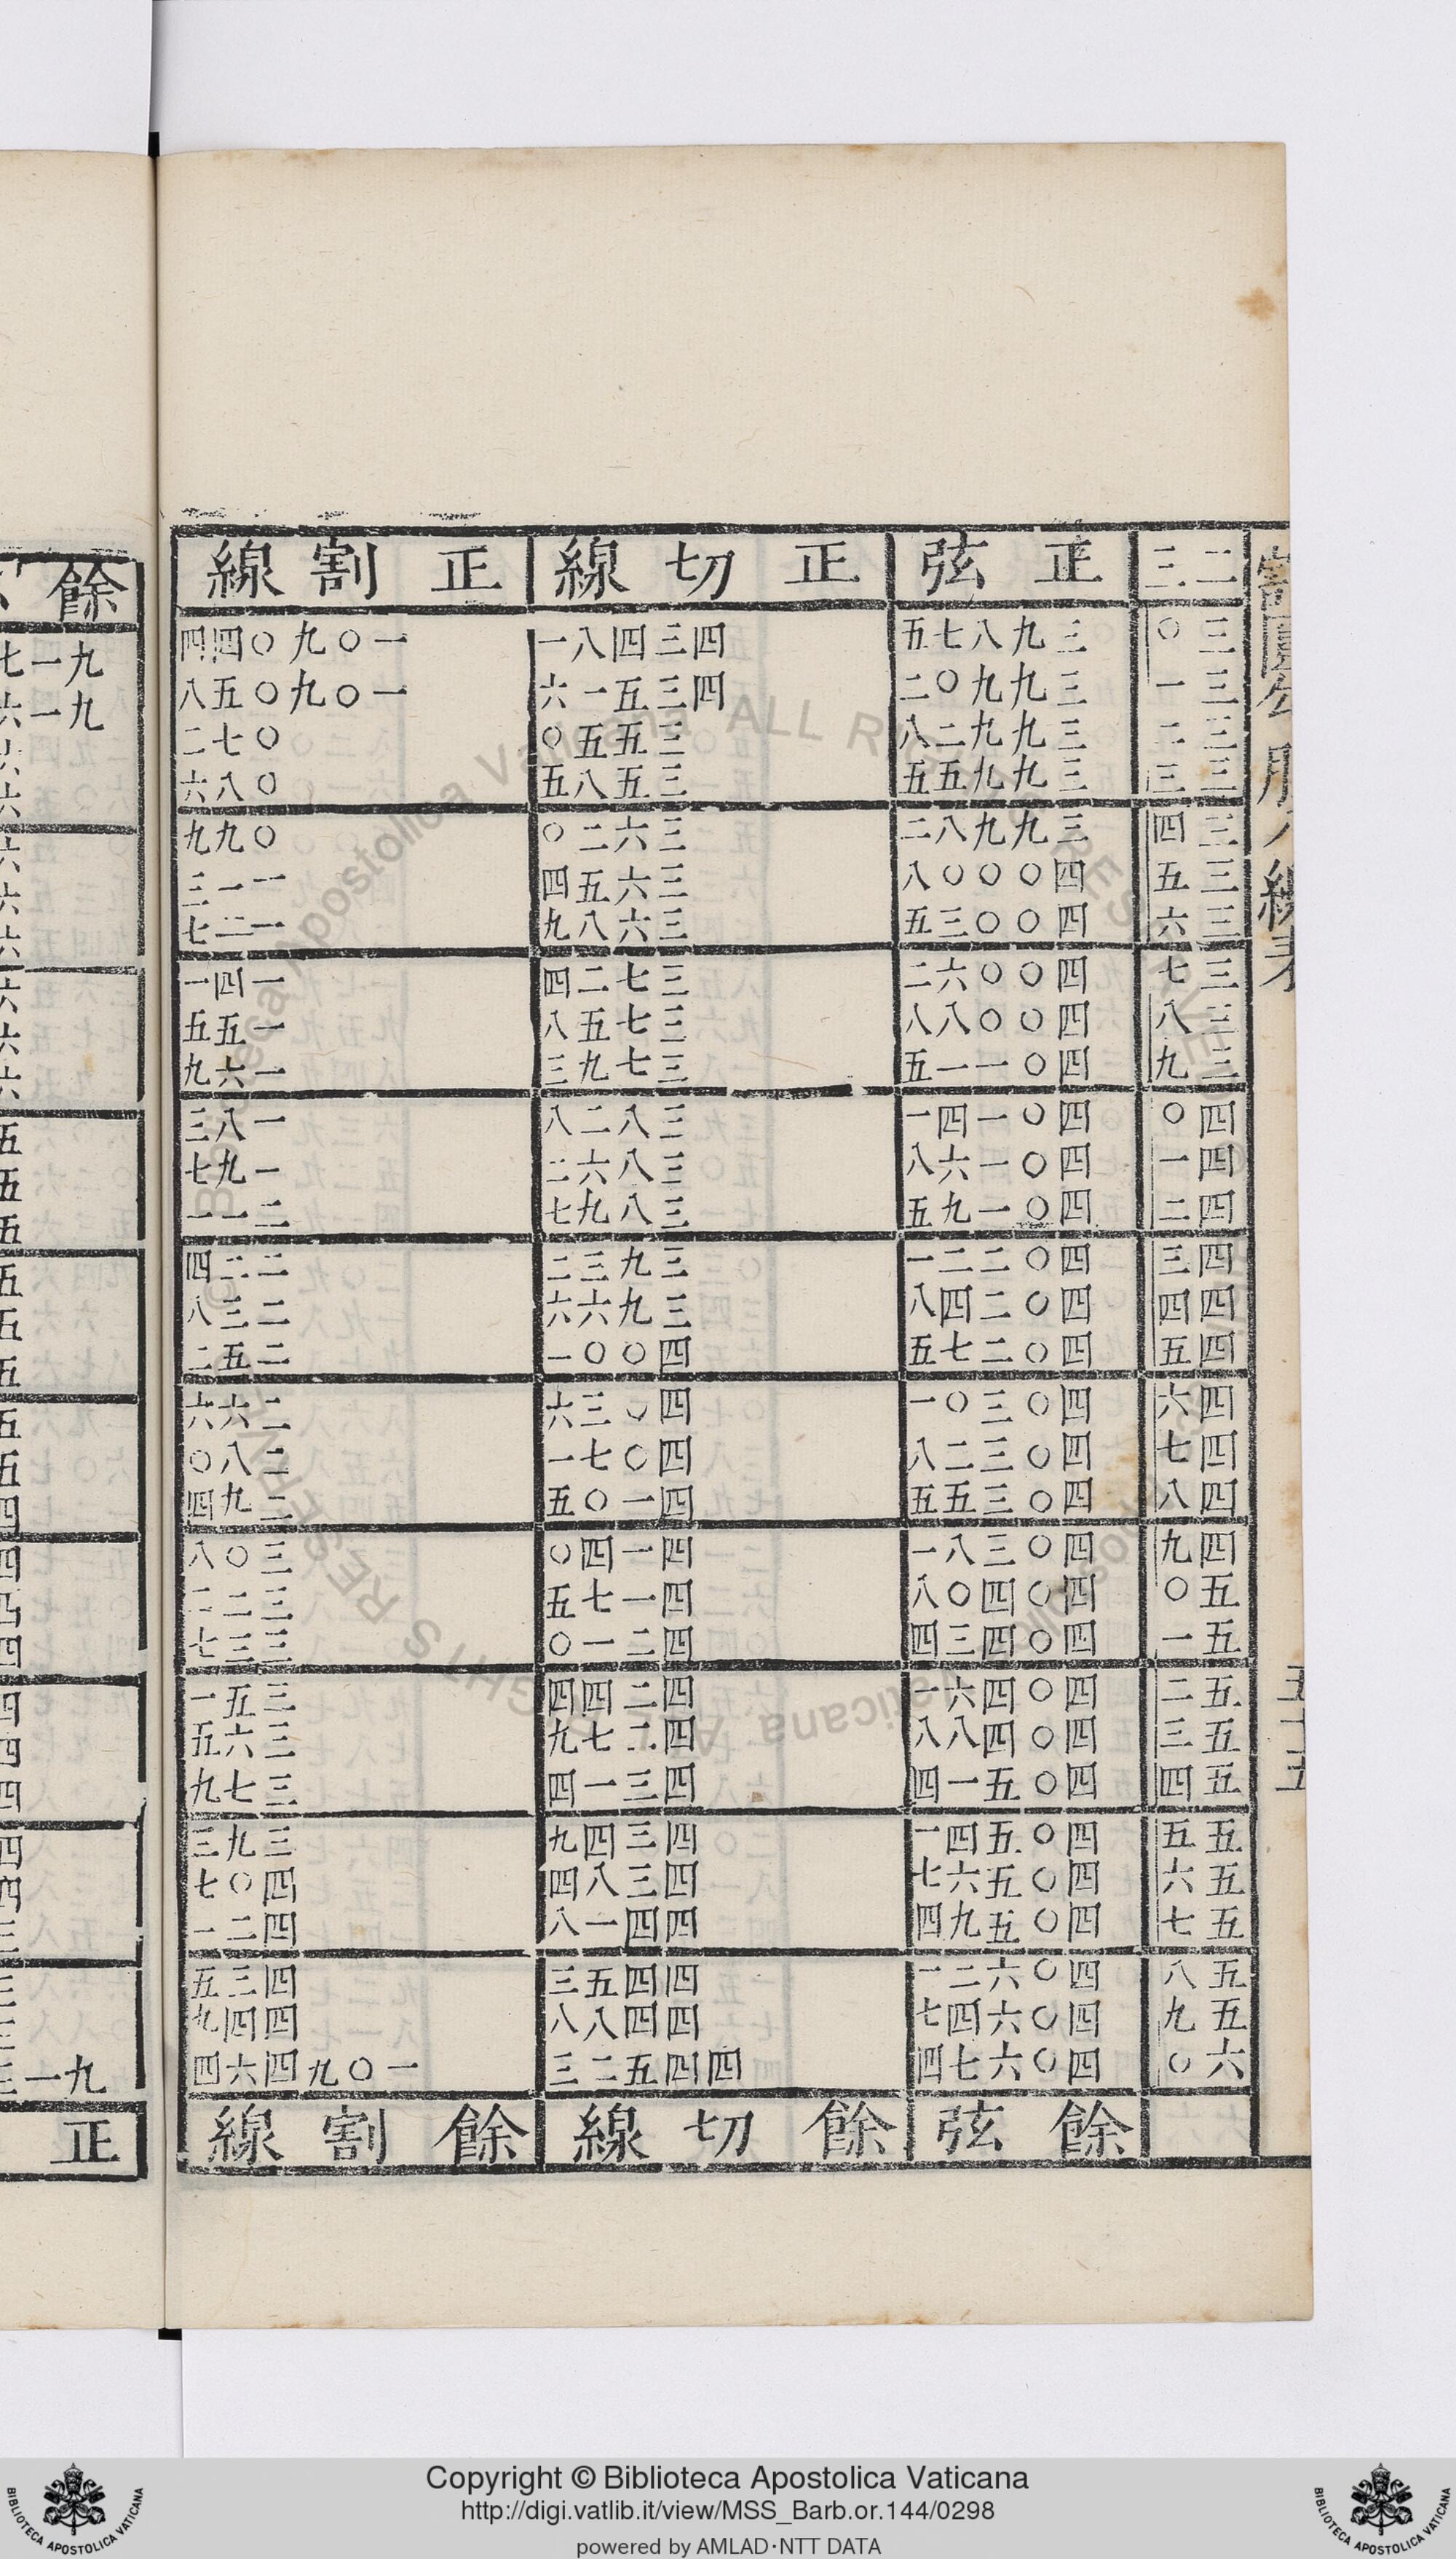 割圜勾股八線表
五十五
二三 正弦 正切線 正割線
三〇 三九八七五 四三四八一 一〇九〇四四
三一 三九九〇二 四三五一六 一〇九〇五八
三二 三九九二八 三五五〇 〇七二
三三 三九九五五 三五八五 〇八六
三四 三九九八二 三六二〇 〇九九
三五 四〇〇〇八 三六五四 一一三
三六 四〇〇三五 三六八九 一二七
三七 四〇〇六二 三七二四 一四一
三八 四〇〇八八 三七五八 一五五
三九 四〇一一五 三七九三 一六九
四〇 四〇一四一 三八二八 一八三
四一 四〇一六八 三八六二 一九七
四二 四〇一九五 三八九七 二一一
四三 四〇二二一 三九三二 二二四
四四 四〇二四八 三九六六 二三八
四五 四〇二七五 四〇〇一 二五二
四六 四〇三〇一 四〇三六 二六六
四七 四〇三二八 四〇七一 二八〇
四八 四〇三五五 四一〇五 二九四
四九 四〇三八一 四一四〇 三〇八
五〇 四〇四〇八 四一七五 三二二
五一 四〇四三四 四二一〇 三三七
五二 四〇四六一 四二四四 三五一
五三 四〇四八八 四二七九 三六五
五四 四〇五一四 四三一四 三七九
五五 四〇五四一 四三四九 三九三
五六 四〇五六七 四三八四 四〇七
五七 四〇五九四 四四一八 四二一
五八 四〇六二一 四四五三 四三五
五九 四〇六四七 四四八八 四四九
六〇 四〇六七四 四四五二三 一〇九四六四
餘弦 餘切線 餘割線
餘
九一七
九一六
六
六
六
六
六
六
六
六
五
五
五
五
五
五
五
五
四
四
四
四
四
四
四
四
四
三
三
三
九一三
正
Biblioteca Apostolica Vaticana ALL RIGHTS RESERVED
Copyright © Biblioteca Apostolica Vaticana
http://digi.vatlib.it/view/MSS_Barb.or.144/0298
powered by AMLAD·NTT DATA
BIBLIOTECA APOSTOLICA VATICANA
BIBLIOTECA APOSTOLICA VATICANA